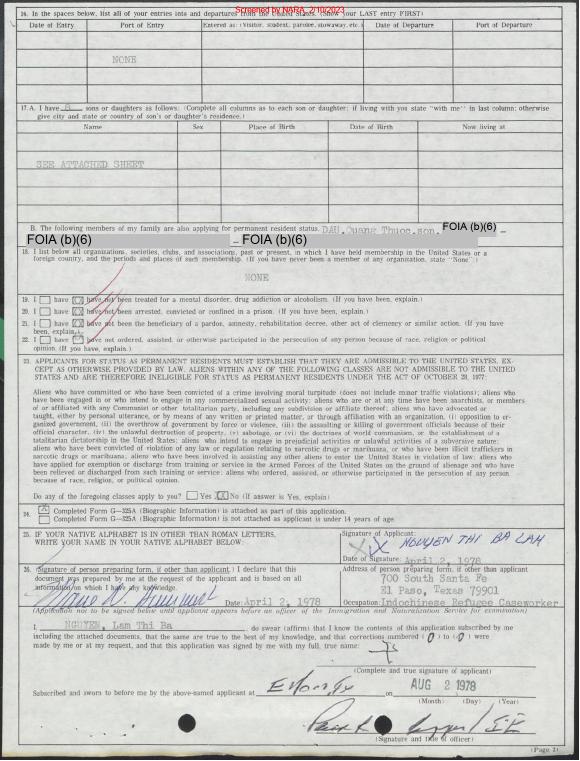 Screened by NARA, 2/10/2023
16. In the spaces below, list all of your entries into and departures from the United States. (Show your LAST entry FIRST)
Date of Entry Port of Entry Entered as: (Visitor, student, parolee, stowaway, etc.) Date of Departure Port of Departure
NONE
17. A. I have sons or daughters as follows: (Complete all columns as to each son or daughter; if living with you state "with me" in last column; otherwise
give city and state or country of son's or daughter's residence.)
Name Sex Place of Birth Date of Birth Now living at
SEE ATTACHED SHEET
B. The following members of my family are also applying for permanent resident status. DAU, Quang Thuoc, son, FOIA (b)(6)
FOIA (b)(6) FOIA (b)(6)
18. I list below all organizations, societies, clubs, and associations, past or present, in which I have held membership in the United States or a
foreign country, and the periods and places of such membership. (If you have never been a member of any organization, state "None".)
NONE
19. I have X have not been treated for a mental disorder, drug addiction or alcoholism. (If you have been, explain.)
20. I have X have not been arrested, convicted or confined in a prison. (If you have been, explain.)
21. I have X have not been the beneficiary of a pardon, amnesty, rehabilitation decree, other act of clemency or similar action. (If you have
been, explain.)
22. I have have not ordered, assisted, or otherwise participated in the persecution of any person because of race, religion or political
opinion. (If you have, explain.)
23. APPLICANTS FOR STATUS AS PERMANENT RESIDENTS MUST ESTABLISH THAT THEY ARE ADMISSIBLE TO THE UNITED STATES, EX-
CEPT AS OTHERWISE PROVIDED BY LAW. ALIENS WITHIN ANY OF THE FOLLOWING CLASSES ARE NOT ADMISSIBLE TO THE UNITED
STATES AND ARE THEREFORE INELIGIBLE FOR STATUS AS PERMANENT RESIDENTS UNDER THE ACT OF OCTOBER 28, 1977:
Aliens who have committed or who have been convicted of a crime involving moral turpitude (does not include minor traffic violations); aliens who
have been engaged in or who intend to engage in any commercialized sexual activity; aliens who are or at any time have been anarchists, or members
of or affiliated with any Communist or other totalitarian party, including any subdivision or affiliate thereof; aliens who have advocated or
taught, either by personal utterance, or by means of any written or printed matter, or through affiliation with an organization, (i) opposition to or-
ganized government, (ii) the overthrow of government by force or violence, (iii) the assaulting or killing of government officials because of their
official character, (iv) the unlawful destruction of property, (v) sabotage, or (vi) the doctrines of world communism, or the establishment of a
totalitarian dictatorship in the United States; aliens who intend to engage in prejudicial activities or unlawful activities of a subversive nature;
aliens who have been convicted of violation of any law or regulation relating to narcotic drugs or marihuana, or who have been illicit traffickers in
narcotic drugs or marihuana; aliens who have been involved in assisting any other aliens to enter the United States in violation of law; aliens who
have applied for exemption or discharge from training or service in the Armed Forces of the United States on the ground of alienage and who have
been relieved or discharged from such training or service; aliens who ordered, assisted, or otherwise participated in the persecution of any person
because of race, religion, or political opinion.
Do any of the foregoing classes apply to you? Yes X No (If answer is Yes, explain)
24. X Completed Form G-325A (Biographic Information) is attached as part of this application.
Completed Form G-325A (Biographic Information) is not attached as applicant is under 14 years of age.
25. IF YOUR NATIVE ALPHABET IS IN OTHER THAN ROMAN LETTERS,
WRITE YOUR NAME IN YOUR NATIVE ALPHABET BELOW:
Signature of Applicant:
X NGUYEN THI BA LAM
Date of Signature: April 2, 1978
26. (Signature of person preparing form, if other than applicant.) I declare that this
document was prepared by me at the request of the applicant and is based on all
information of which I have any knowledge.
Date: April 2, 1978
Address of person preparing form, if other than applicant
700 South Santa Fe
El Paso, Texas 79901
Occupation: Indochinese Refugee Caseworker
(Application not to be signed below until applicant appears before an officer of the Immigration and Naturalization Service for examination)
I, NGUYEN, Lam Thi Ba do swear (affirm) that I know the contents of this application subscribed by me
including the attached documents, that the same are true to the best of my knowledge, and that corrections numbered (0) to (0) were
made by me or at my request, and that this application was signed by me with my full, true name:
(Complete and true signature of applicant)
Subscribed and sworn to before me by the above-named applicant at El Paso, Tx on AUG 2 1978
(Month) (Day) (Year)
(Signature and title of officer)
(Page 2)